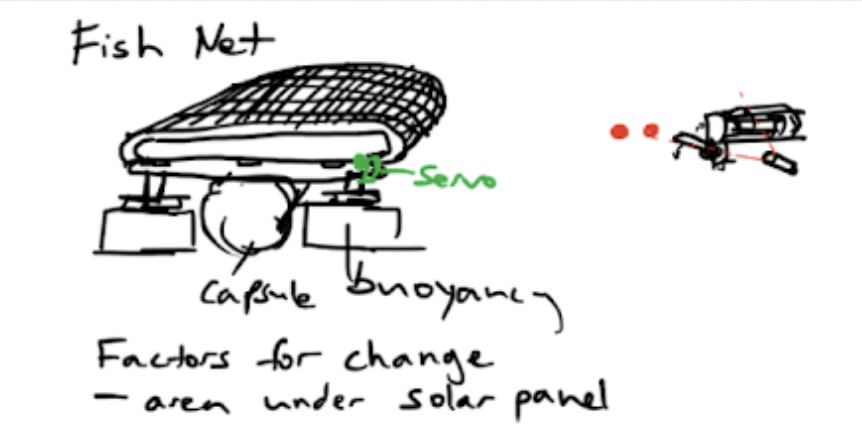 Fish Net
Servo
Capsule
buoyancy
Factors for change
- area under solar panel